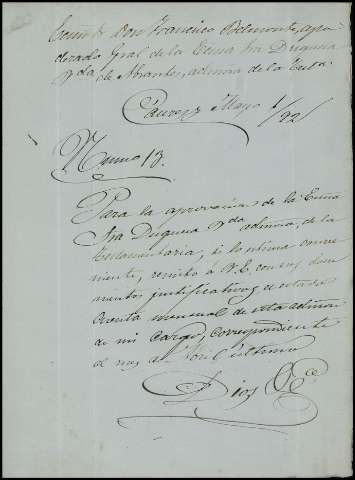 Exmo. Sr. Don Francisco Belmonte, apo-
derado Gral de la Exma Sra Duquesa
Vda de Abrantes, admora de la Testa.
Mayo 1/92
Num.o 13.
Para la aprovacion de la Exma
Sra Duquesa Vda admora, de la
Testamentaria, si lo estima conve-
niente, remito a V.E. con sus docu-
mentos justificativos, el estado
cuenta mensual de esta admon
de mi cargo, correspondiente
al mes de Abril ultimo
Dios &c.